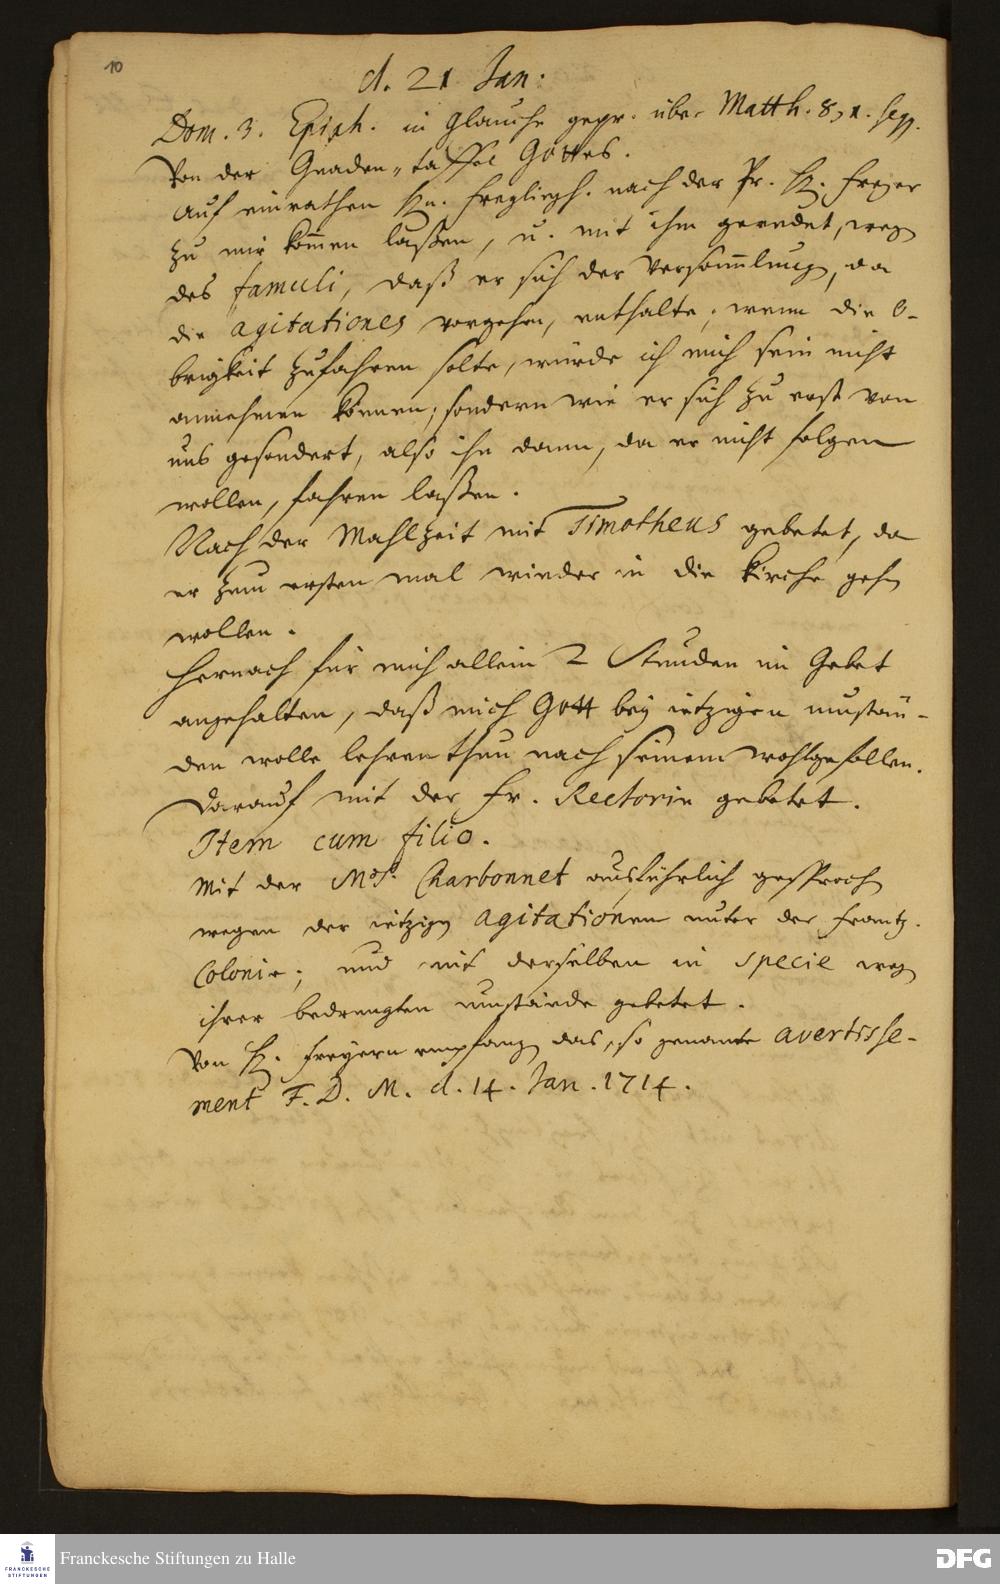 10
d. 21 Jan:
Dom. 3. Epiph. in Glauche gepr. über Matth. 8, 1. seqq.
Von der Gnaden-taffel Gottes.
Auf einrathen Hn. Freylingh. nach der Pr. H. Freyer
zu mir kom̄en laßen, u. mit ihm geredet, weg
des famuli, daß er sich der Versam̄lung, da
die agitationes vorgehen, enthalte; wenn die O-
brigkeit zufahren solte, würde ich mich sein nicht
annehmen können; sondern wie er sich zu erst von
uns gesondert, also ihn dann, da er nicht folgen
wollen, fahren laßen.
Nach der Mahlzeit mit Timotheus gebetet, da
er zum ersten mal wieder in die Kirche gehn
wollen.
Hernach für mich allein 2 Stunden im Gebet
angehalten, daß mich Gott bey ietzigen umstän-
den wolle lehren thun nach seinem wohlgefallen.
Darauf mit der Fr. Rectorin gebetet.
Item cum filio.
Mit der Charbonnet ausführlich gesproch
wegen der ietzign agitationen unter der frantz.
Colonie; und mit derselben in specie weg
ihrer bedrengten umstände gebetet.
Von H. Freyern empfang das, so genante avertisse-
ment F. D. M. d. 14. Jan. 1714.
FRANCKESCHE STIFTUNGEN
Franckesche Stiftungen zu Halle
DFG